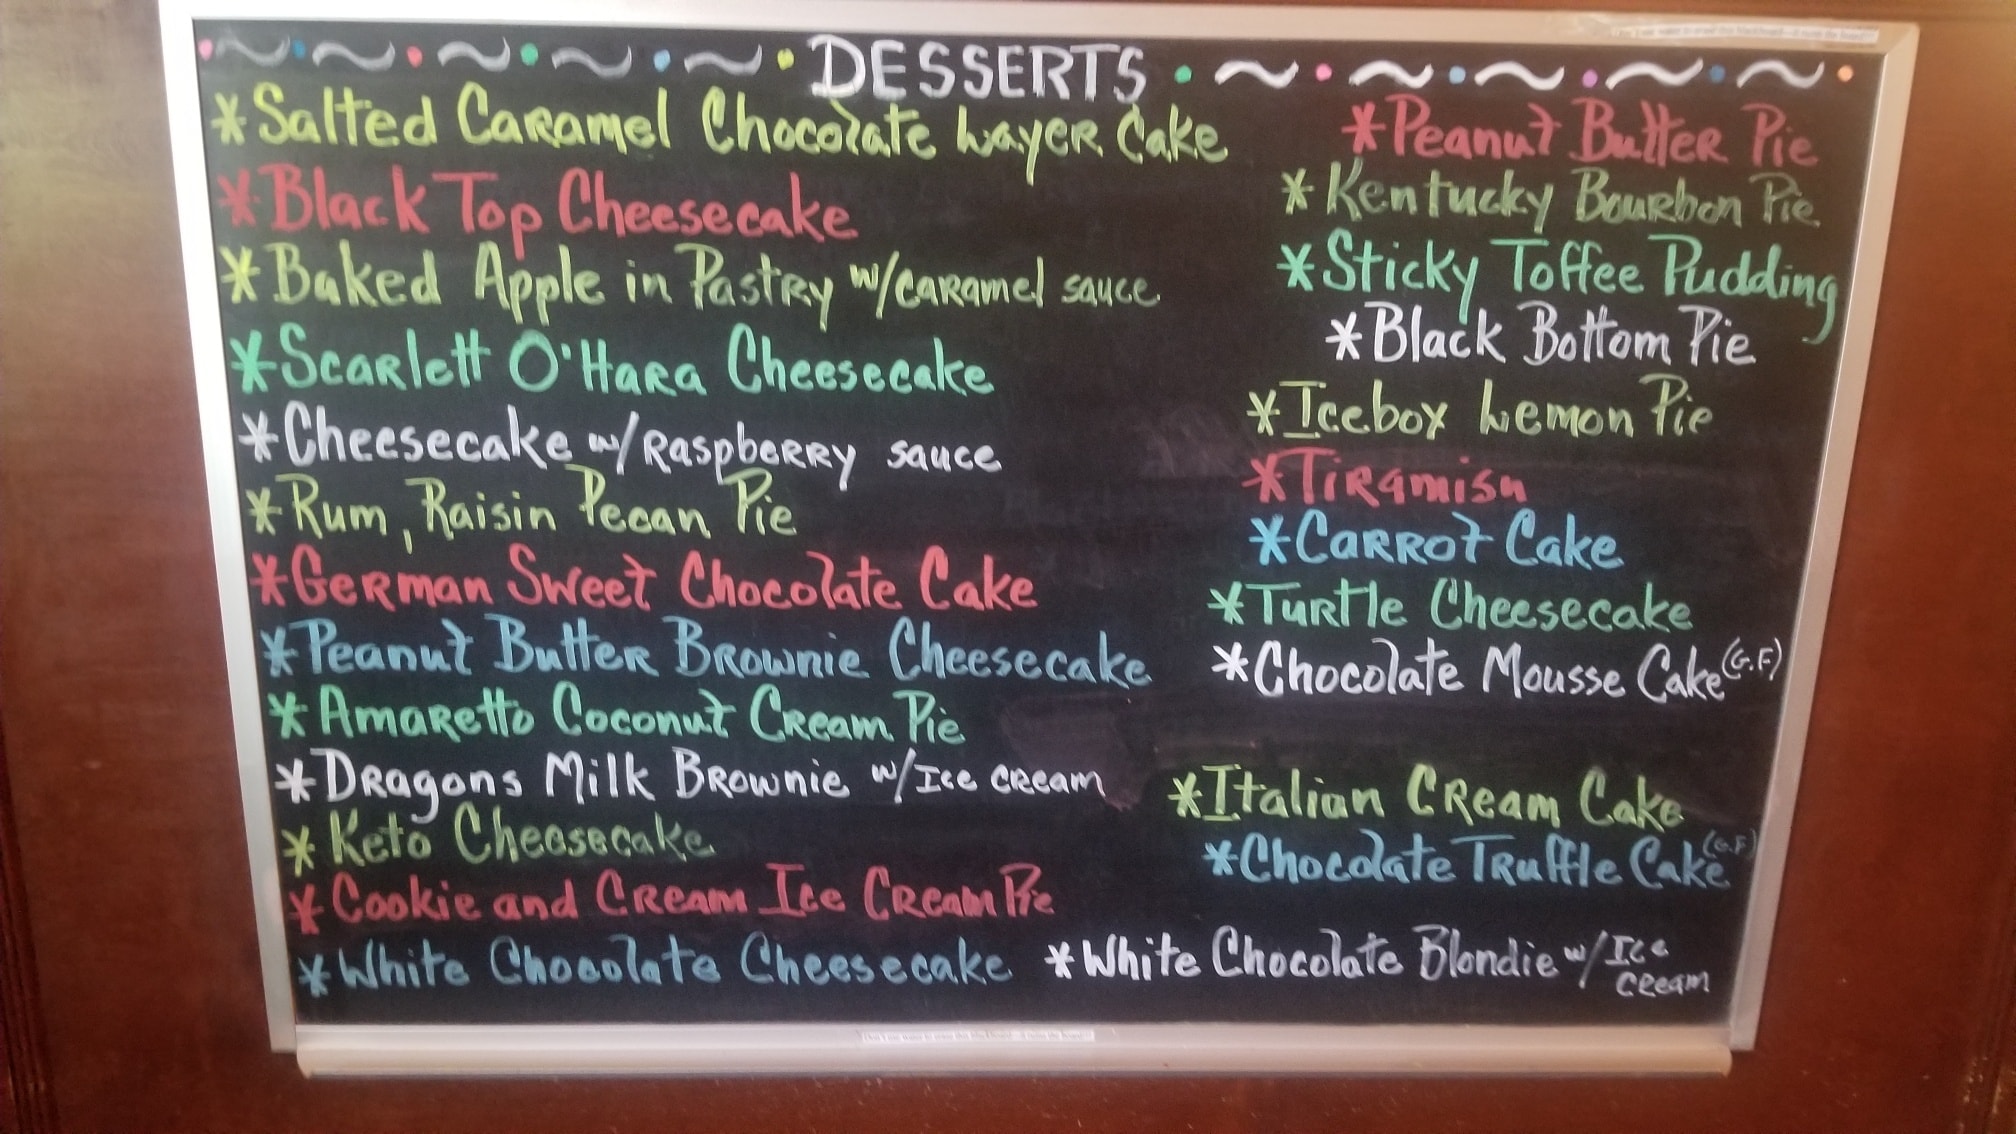 DESSERTS
*Salted Caramel Chocolate Layer Cake
*Black Top Cheesecake
*Baked Apple in Pastry w/caramel sauce
*Scarlett O'Hara Cheesecake
*Cheesecake w/raspberry sauce
*Rum, Raisin Pecan Pie
*German Sweet Chocolate Cake
*Peanut Butter Brownie Cheesecake
*Amaretto Coconut Cream Pie
*Dragons Milk Brownie w/Ice cream
*Keto Cheesecake
*Cookie and Cream Ice Cream Pie
*White Chocolate Cheesecake
*Peanut Butter Pie
*Kentucky Bourbon Pie
*Sticky Toffee Pudding
*Black Bottom Pie
*Icebox Lemon Pie
*Tiramisu
*Carrot Cake
*Turtle Cheesecake
*Chocolate Mousse Cake (G.F)
*Italian Cream Cake
*Chocolate Truffle Cake (G.F)
*White Chocolate Blondie w/Ice
cream